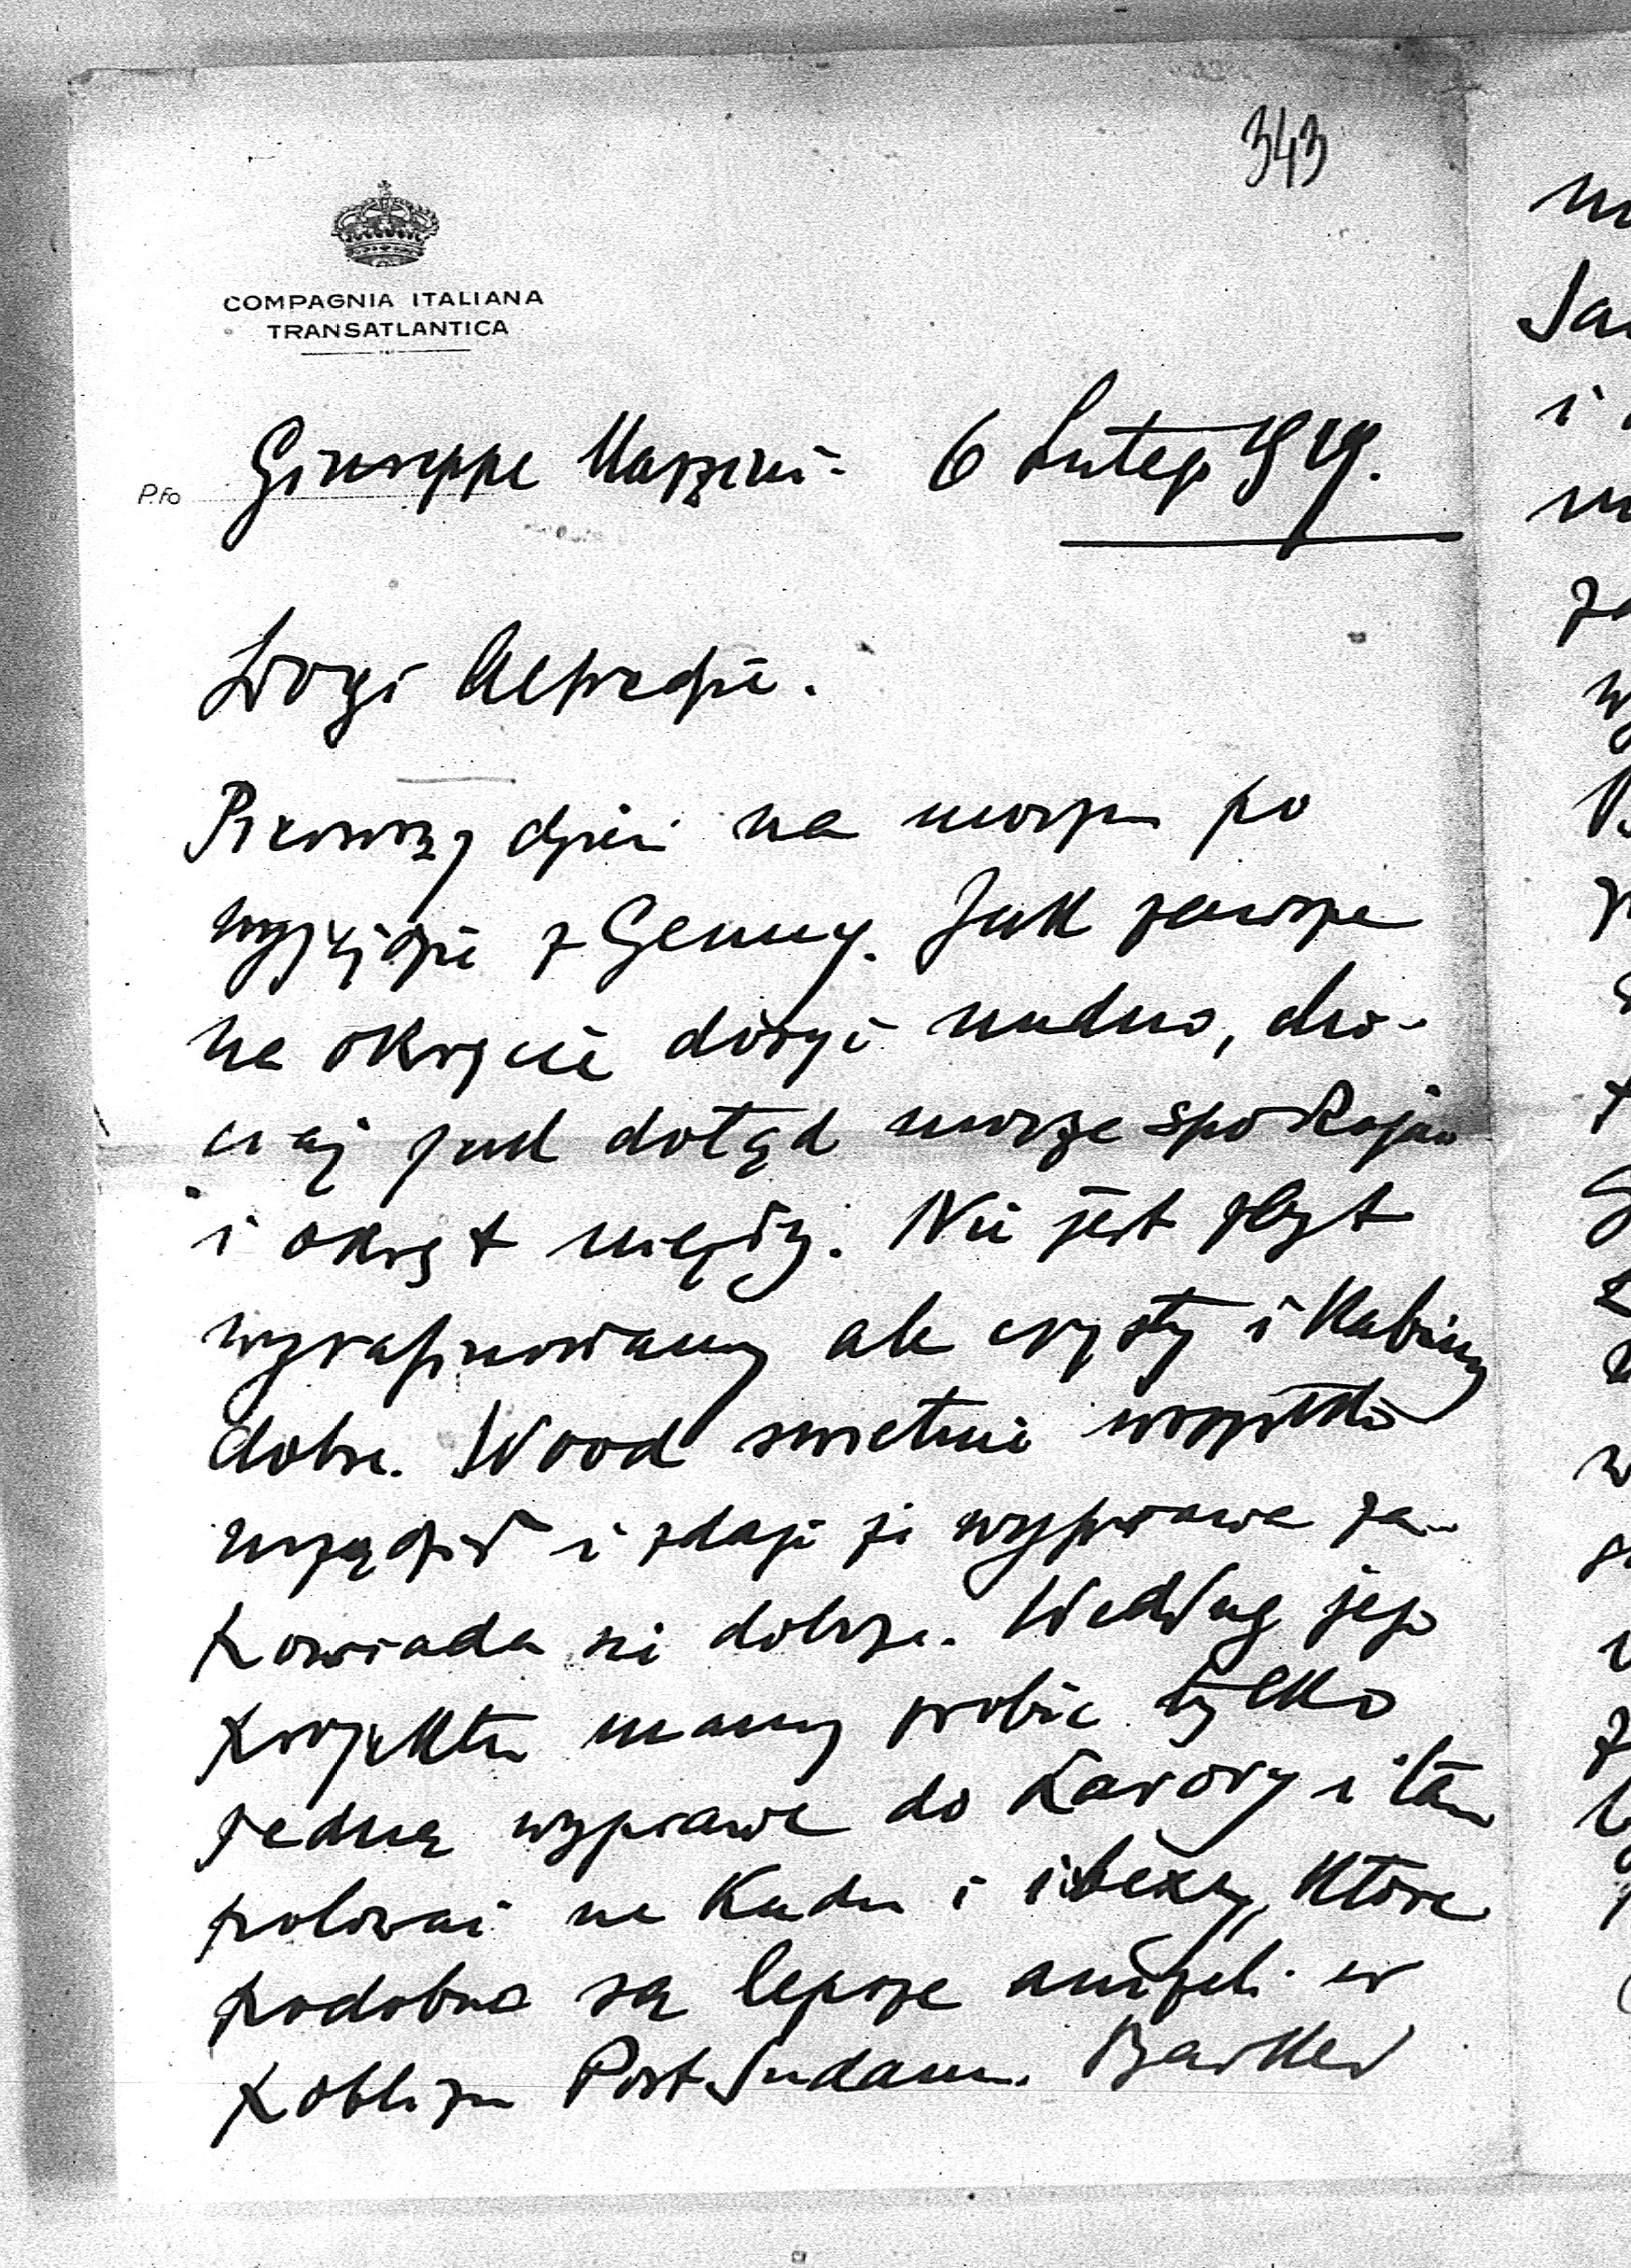 343
COMPAGNIA ITALIANA
TRANSATLANTICA
P.fo Giuseppe Mazzini 6 Lutego 1929.
Drogi Alfredzie.
Pierwszy dzień na morzu po
wyjeździe z Genuy. Jak zawsze
na okręcie dosyć nudno, cho-
ciaż jak dotąd morze spokojne
i okręt niezły. Nie jest zbyt
wyrafinowany ale czysty i kabiny
dobre. Wood swietnie wszystko
urządził i zdaje się wyprawa za-
powiada się dobrze. Według jego
projektu mamy zrobić tylko
jedną wyprawę do Karory i tam
polować na Kudu i ibexy, które
podobno są lepsze aniżeli w
pobliżu Port Sudanu. Barker